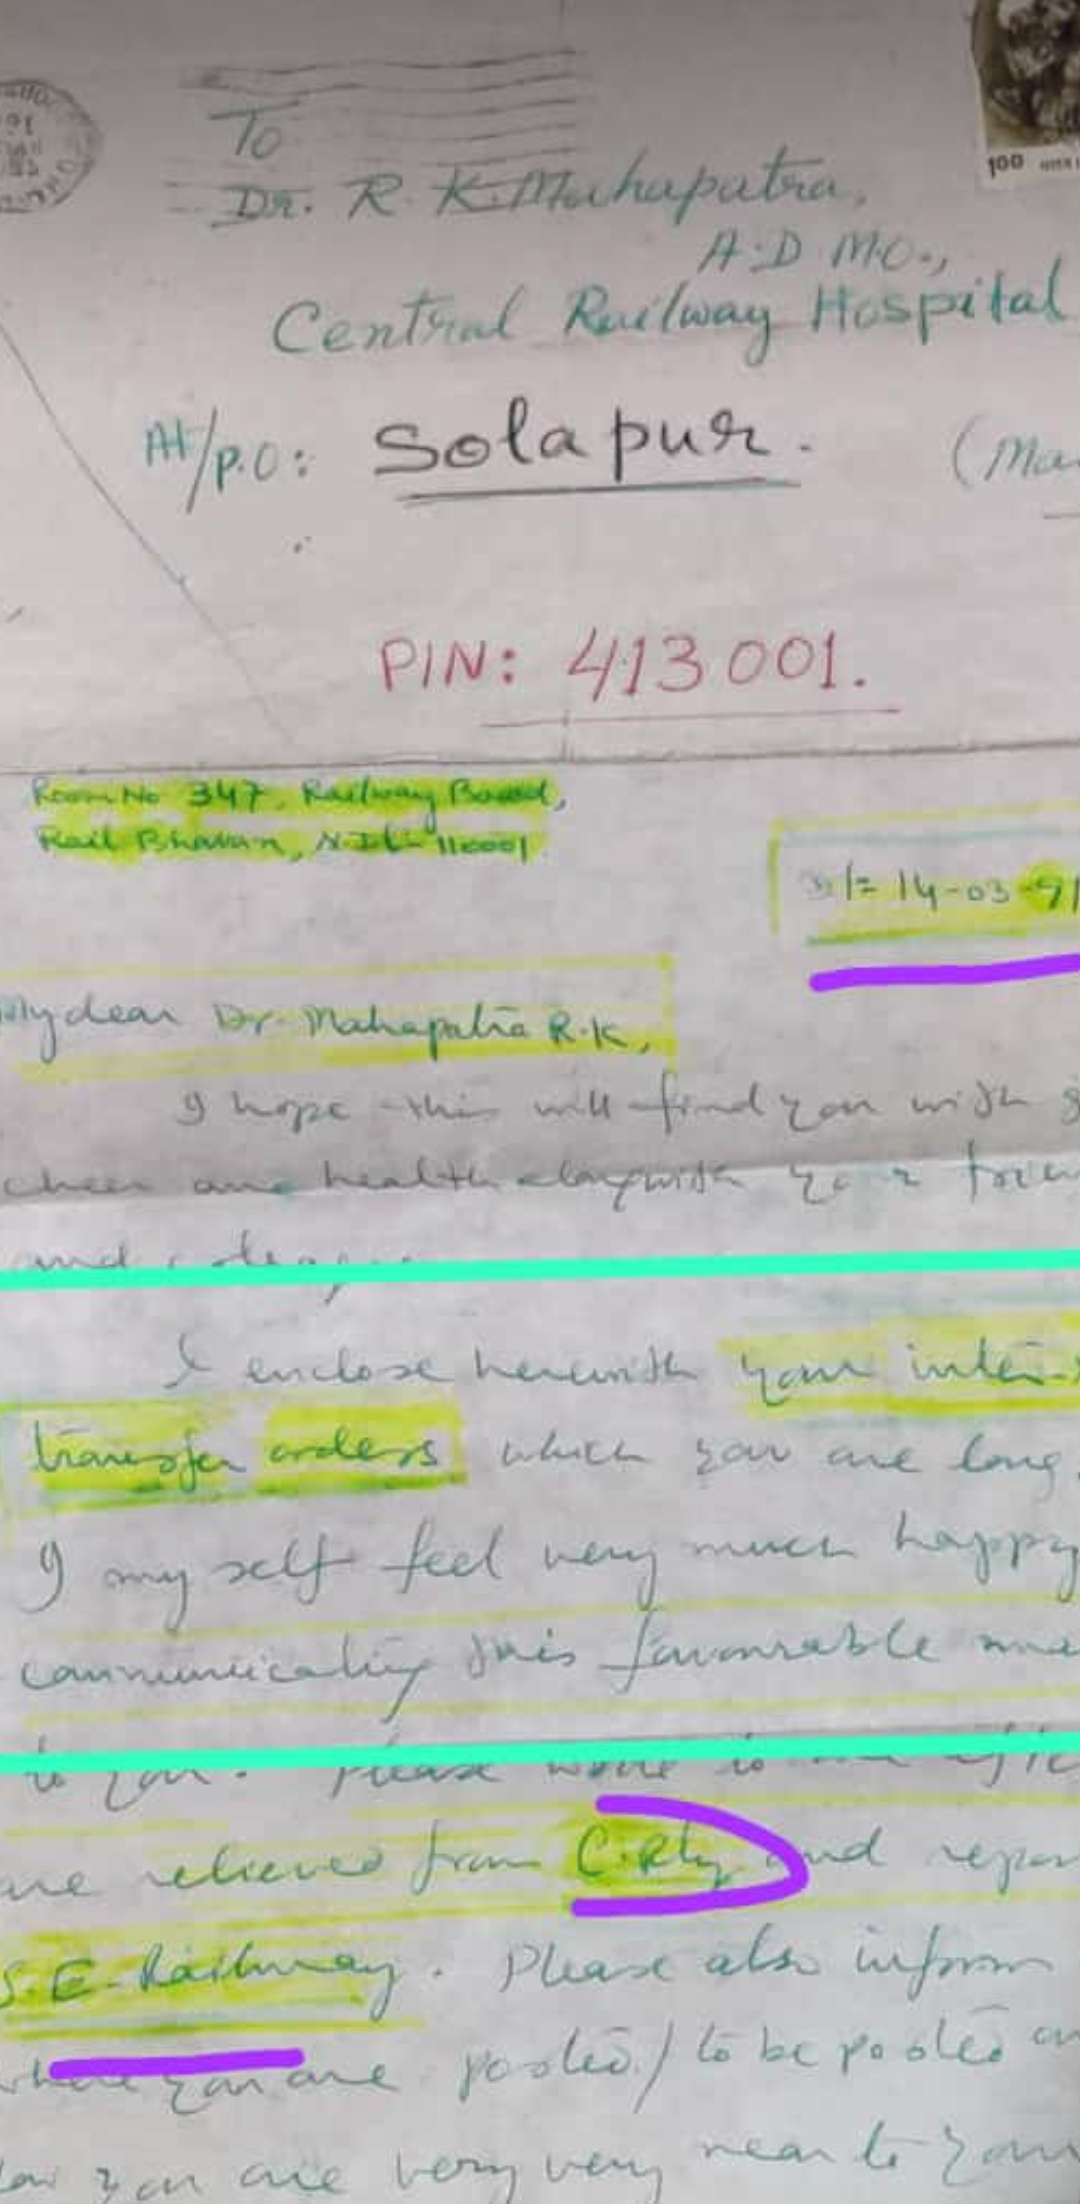 To
Dr. R. K. Mahapatra,
A.D.M.O.,
Central Railway Hospital
At/P.O: Solapur. (Ma
PIN: 413 001.
100
Room No 347, Railway Board,
Rail Bhavan, N.DL- 110001
D/= 14-03-91
My dear Dr. Mahapatra R.K,
I hope this will find you with g
cheer and health alongwith your frien
and
I enclose herewith your inter-
transfer orders which you are long
I my self feel very much happy
communicating this favourable
to you. Please write to me
are relieved from C.Rly and repor
S.E-Railway. Please also inform
where you are posted/to be posted
you are very very near to your